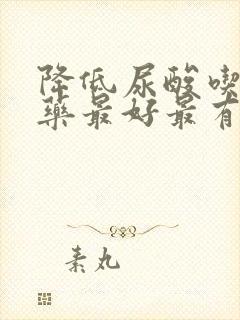 降低尿酸喫
藥最好最有
素丸